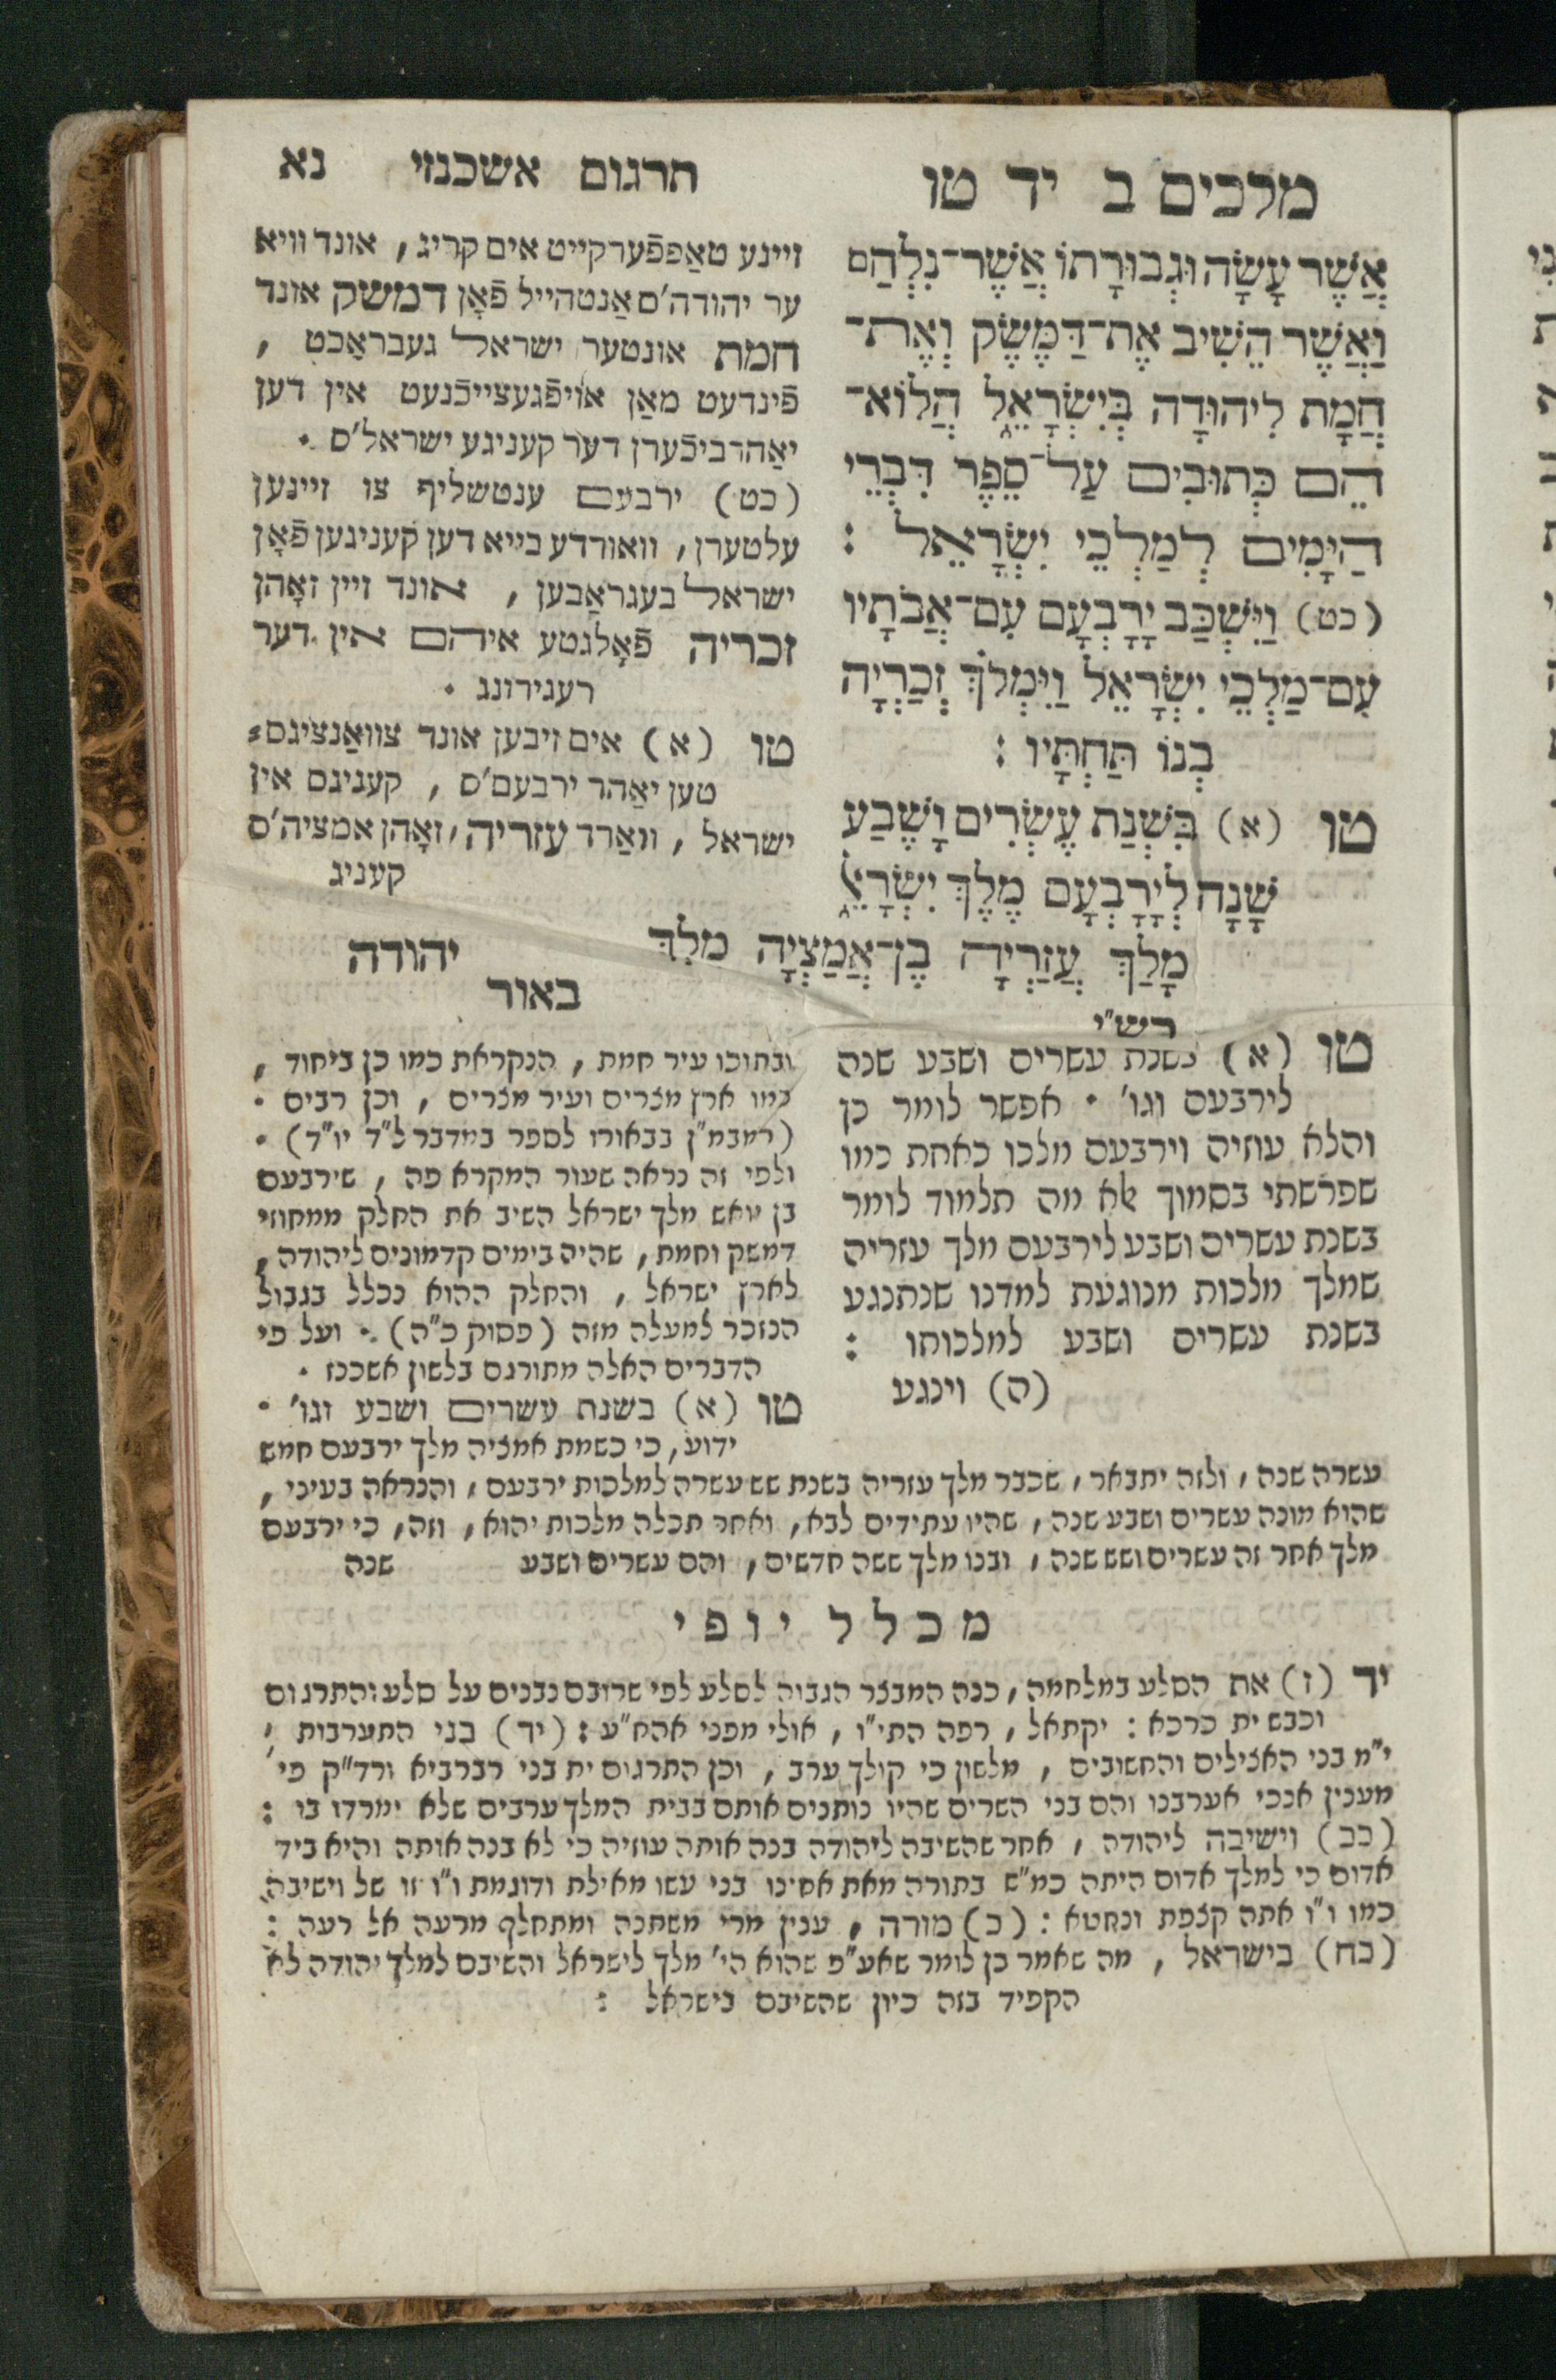 מלכים ב יד טו
אֲשֶׁר עָשָׂה וּגְבוּרָתוֹ אֲשֶׁר־נִלְהַם
וַאֲשֶׁר הֵשִׁיב אֶת־דַּמֶּשֶׂק וְאֶת־
חֲמָת לִיהוּדָה בְּיִשְׂרָאֵל הֲלוֹא־
הֵם כְּתוּבִים עַל־סֵפֶר דִּבְרֵי
הַיָּמִים לְמַלְכֵי יִשְׂרָאֵל :
(כט) וַיִּשְׁכַּב יָרָבְעָם עִם־אֲבֹתָיו
עִם־מַלְכֵי יִשְׂרָאֵל וַיִּמְלֹךְ זְכַרְיָה
בְנוֹ תַּחְתָּיו :
טו (א) בִּשְׁנַת עֶשְׂרִים וָשֶׁבַע
שָׁנָה לְיָרָבְעָם מֶלֶךְ יִשְׂרָאֵל
מָלַךְ עֲזַרְיָה בֶן־אֲמַצְיָה מֶלֶךְ
תרגום אשכנזי נא
זיינע טאַפפֿערקייט אים קריג , אונד וויא
ער יהודה'ס אַנטהייל פֿאָן דמשק אונד
חמת אונטער ישראל געבראַכט ,
פֿינדעט מאַן אויפֿגעצייכֿנעט אין דען
יאַהרביכֿערן דער קעניגע ישראל'ס .
(כט) ירבעם ענטשליף צו זיינען
עלטערן , וואורדע בייא דען קעניגען פֿאָן
ישראל בעגראַבען , אונד זיין זאָהן
זכריה פֿאָלגטע איהם אין דער
רעגירונג .
טו (א) אים זיבען אונד צוואַנציגס=
טען יאַהר ירבעם'ס , קעניגס אין
ישראל , וואַרד עזריה , זאָהן אמציה'ס
קעניג
יהודה
רש"י
טו (א) בשנת עשרים ושבע שנה
לירבעם וגו' . אפשר לומר כן
והלא עוזיה וירבעם מלכו כאחת כמו
שפרשתי בסמוך אלא מה תלמוד לומר
בשנת עשרים ושבע לירבעם מלך עזריה
שמלך מלכות מנוגעת למדנו שנתנגע
בשנת עשרים ושבע למלכותו :
(ה) וינגע
באור
ובתוכו עיר חמת , הנקראת כמו כן ביחוד ,
כמו ארץ מצרים ועיר מצרים , וכן רבים .
(רמבמ"ן בבאורו לספר במדבר ל"ד יו"ד) .
ולפי זה נראה שעור המקרא פה , שירבעם
בן יואש מלך ישראל השיב את החלק ממחוזי
דמשק וחמת , שהיה בימים קדמונים ליהודה ,
לארץ ישראל , והחלק ההוא נכלל בגבול
הנזכר למעלה מזה (פסוק כ"ה) . ועל פי
הדברים האלה מתורגם בלשון אשכנז .
טו (א) בשנת עשרים ושבע וגו' .
ידוע , כי כשמת אמציה מלך ירבעם חמש
עשרה שנה , ולזה יתבאר , שכבר מלך עזריה בשנת שש עשרה למלכות ירבעם , והנראה בעיני ,
שהוא מונה עשרים ושבע שנה , שהיו עתידים לבא , ואחר תכלה מלכות יהוא , וזה , כי ירבעם
מלך אחר זה עשרים ושש שנה , ובנו מלך ששה חדשים , והם עשרים ושבע שנה
מכלל יופי
יד (ז) את הסלע במלחמה , כנה המבצר הגבוה לסלע לפי שרובם נבנים על סלע והתרגום
וכבש ית כרכא : יקתאל , רפה התי"ו , אולי מפני אהח"ע : (יד) בני התערבות ,
י"מ בני האצילים והחשובים , מלשון כי קולך ערב , וכן התרגום ית בני רברביא ורד"ק פי'
מענין אנכי אערבנו והם בני השרים שהיו נותנים אותם בבית המלך ערבים שלא ימרדו בו :
(כב) וישיבה ליהודה , אחר שהשיבה ליהודה בנה אותה עוזיה כי לא בנה אותה והיא ביד
אדום כי למלך אדום היתה כמ"ש בתורה מאת אחינו בני עשו מאילת ודוגמת ו"ו זו של וישיבה
כמו ו"ו אתה קצפת ונחטא : (כ) מורה , ענין מרי משתנה ומתחלף מרעה אל רעה :
(כח) בישראל , מה שאמר כן לומר שאע"פ שהוא הי' מלך לישראל והשיבם למלך יהודה לא
הקפיד בזה כיון שהשיבם בישראל :